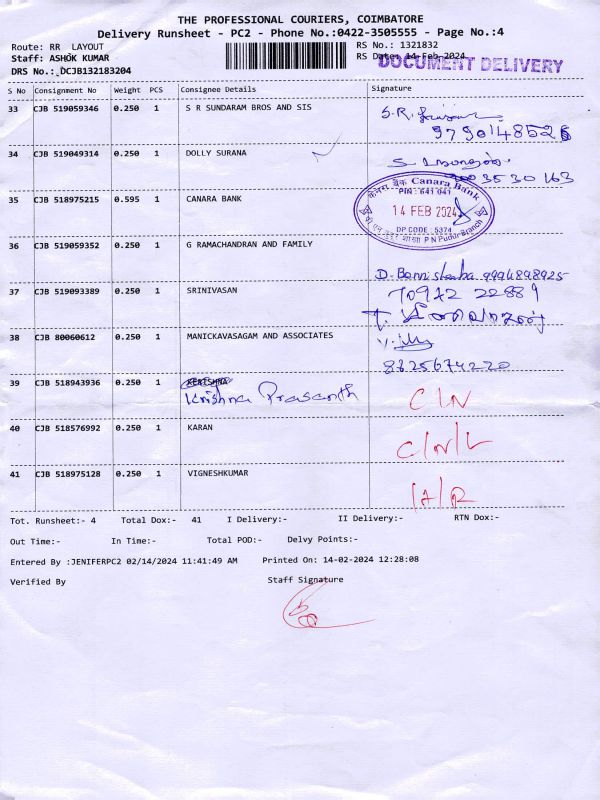 THE PROFESSIONAL COURIERS, COIMBATORE
Delivery Runsheet - PC2 - Phone No.:0422-3505555 - Page No.:4
Route: RR LAYOUT
RS No.: 1321832
Staff: ASHOK KUMAR
RS Date: 14-Feb-2024
DOCUMENT DELIVERY
DRS No.: DCJB132183204
S No Consignment No Weight PCS Consignee Details Signature
33 CJB 519059346 0.250 1 S R SUNDARAM BROS AND SIS
S.R.
9790148526
34 CJB 519049314 0.250 1 DOLLY SURANA
S.
3530163
35 CJB 518975215 0.595 1 CANARA BANK
केनरा बैंक Canara Bank
PIN : 641 041
14 FEB 2024
DP CODE : 5374
P N Pudur Branch
36 CJB 519059352 0.250 1 G RAMACHANDRAN AND FAMILY
37 CJB 519093389 0.250 1 SRINIVASAN
70942 22889
38 CJB 80060612 0.250 1 MANICKAVASAGAM AND ASSOCIATES
8325674220
39 CJB 518943936 0.250 1
Krishna Prasanth
C/N
40 CJB 518576992 0.250 1 KARAN
C/N/L
41 CJB 518975128 0.250 1 VIGNESHKUMAR
Tot. Runsheet:- 4 Total Dox:- 41 I Delivery:- II Delivery:- RTN Dox:-
Out Time:- In Time:- Total POD:- Delvy Points:-
Entered By :JENIFERPC2 02/14/2024 11:41:49 AM Printed On: 14-02-2024 12:28:08
Verified By Staff Signature